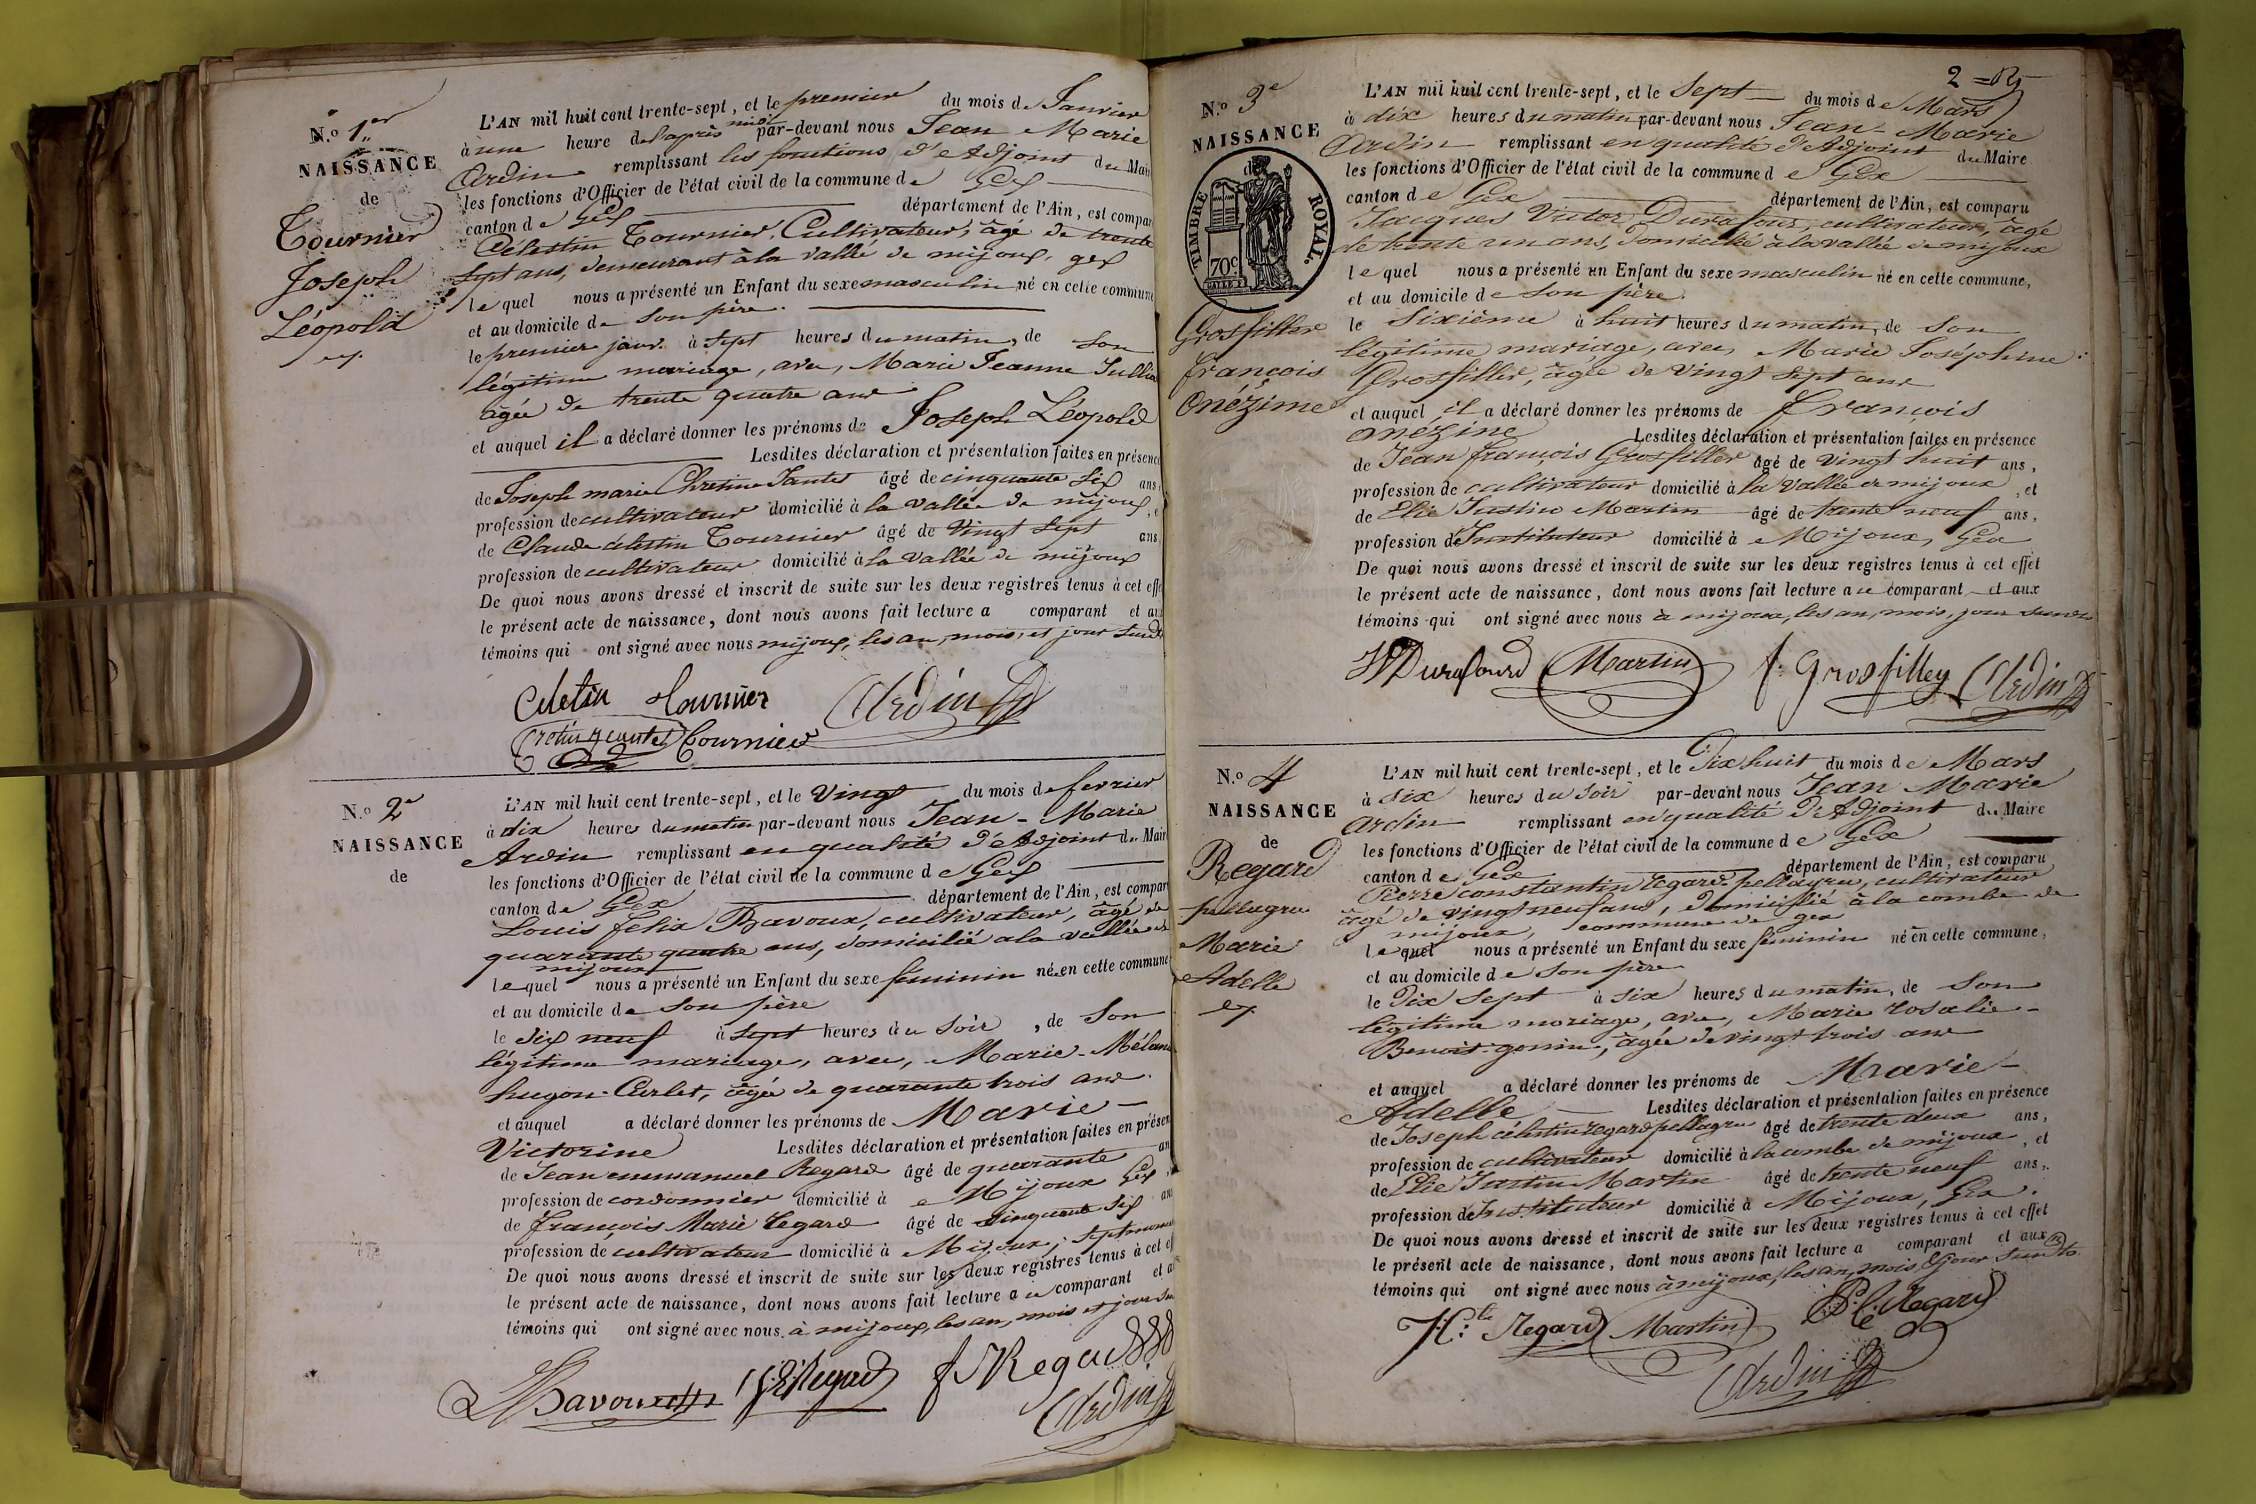 N.o 1.er
NAISSANCE
de
Tournier
Joseph
Léopold
L'AN mil huit cent trente-sept, et le premier du mois de Janvier
à une heure de l'après midi par-devant nous Jean Marie
Ardin remplissant les fonctions d'Adjoint du Mair
les fonctions d'Officier de l'état civil de la commune de Gex
canton de Gex département de l'Ain, est compar
Célestin Tournier, Cultivateur, âgé de trente
sept ans, demeurant à la vallé de mijoux, gex
lequel nous a présenté un Enfant du sexe masculin né en cette commune
et au domicile de son père.
le premier janv. à sept heures du matin, de son
légitime mariage, avec, Marie Jeanne Jullia
agée de trente quatre ans
et auquel il a déclaré donner les prénoms de Joseph Léopold
Lesdites déclaration et présentation faites en présence
de Joseph marie âgé de cinquante six ans,
profession de cultivateur domicilié à la vallée de mijoux, e
de Claude célestin Tournier âgé de vingt sept ans,
profession de cultivateur domicilié à la vallée de mijoux
De quoi nous avons dressé et inscrit de suite sur les deux registres tenus à cet effe
le présent acte de naissance, dont nous avons fait lecture a comparant et au
témoins qui ont signé avec nous mijoux, les an, mois, et jour susdi
Celetin tournier Ardin
Tournier
N.o 2e
NAISSANCE
de
L'AN mil huit cent trente-sept, et le vingt du mois de fevrier
à dix heures du matin par-devant nous Jean-Marie
Ardin remplissant en qualité d'Adjoint du Mair
les fonctions d'Officier de l'état civil de la commune de Gex
canton de Gex département de l'Ain, est compar
Louis felix Bavoux, cultivateur, âgé de
quarante quatre ans, domicilié a la vallée de
mijoux
lequel nous a présenté un Enfant du sexe féminin né en cette commune
et au domicile de son père
le dix neuf à sept heures du soir, de son
légitime mariage, avec, Marie-Mélan
hugon-Carlet, âgée de quarante trois ans.
et auquel a déclaré donner les prénoms de Marie-
Victorine Lesdites déclaration et présentation faites en présen
de Jean emmanuel Regard âgé de quarante an
profession de cordonnier domicilié à Mijoux Gex
de François Marie Regard âgé de cinquante six ans
profession de cultivateur domicilié à Mijoux, Septmoncel
De quoi nous avons dressé et inscrit de suite sur les deux registres tenus à cet ef
le présent acte de naissance, dont nous avons fait lecture au comparant et a
témoins qui ont signé avec nous à mijoux, les an, mois et jour su
Bavoux J.E. Regard f J Regard
Ardin
2
N.o 3e
NAISSANCE
de
TIMBRE ROYAL.
70c
Grosfiller
françois
Onézime
L'AN mil huit cent trente-sept, et le Sept du mois de Mars
à dix heures du matin par-devant nous Jean-Marie
Ardin remplissant en qualité d'Adjoint du Maire
les fonctions d'Officier de l'état civil de la commune de Gex
canton de Gex département de l'Ain, est comparu
Jacques Victor Durafour, cultivateur, âgé
de trente un ans, domicilié à la vallée de mijoux
lequel nous a présenté un Enfant du sexe masculin né en cette commune,
et au domicile de son père.
le sixième à huit heures du matin, de son
légitime mariage, avec, Marie Joséphine
Grosfiller, âgée de vingt sept ans
et auquel il a déclaré donner les prénoms de françois
onézine Lesdites déclaration et présentation faites en présence
de Jean françois Grosfiller âgé de vingt huit ans,
profession de cultivateur domicilié à la vallée de mijoux, et
de Elie Justin Martin âgé de trente neuf ans,
profession de Instituteur domicilié à Mijoux, Gex
De quoi nous avons dressé et inscrit de suite sur les deux registres tenus à cet effet
le présent acte de naissance, dont nous avons fait lecture au comparant et aux
témoins qui ont signé avec nous à mijoux, les an, mois, jour susdits
Durafourd Martin f. Grosfilley Ardin
N.o 4
NAISSANCE
de
Regard
pellagru
Marie
Adelle
L'AN mil huit cent trente-sept, et le Dix huit du mois de Mars
à six heures du soir par-devant nous Jean Marie
Ardin remplissant en qualité d'Adjoint du Maire
les fonctions d'Officier de l'état civil de la commune de Gex
canton de Gex département de l'Ain, est comparu
Pierre constantin regard-pellagru, cultivateur
âgé de vingt neuf ans, domicilié à la combe de
mijoux, commune de gex
lequel nous a présenté un Enfant du sexe féminin né en cette commune,
et au domicile de son père
le Dix Sept à six heures du matin, de son
légitime mariage, avec, Marie rosalie-
Benoit-gonin, âgée de vingt trois ans
et auquel a déclaré donner les prénoms de Marie-
Adelle Lesdites déclaration et présentation faites en présence
de Joseph célestin regard pellagru âgé de trente deux ans,
profession de cultivateur domicilié à la combe de mijoux, et
de Elie Justin Martin âgé de trente neuf ans,
profession de Instituteur domicilié à Mijoux, Gex.
De quoi nous avons dressé et inscrit de suite sur les deux registres tenus à cet effet
le présent acte de naissance, dont nous avons fait lecture a comparant et aux
témoins qui ont signé avec nous à mijoux, les an, mois & jour susdits
Regard Martin P.C. Regard
Ardin